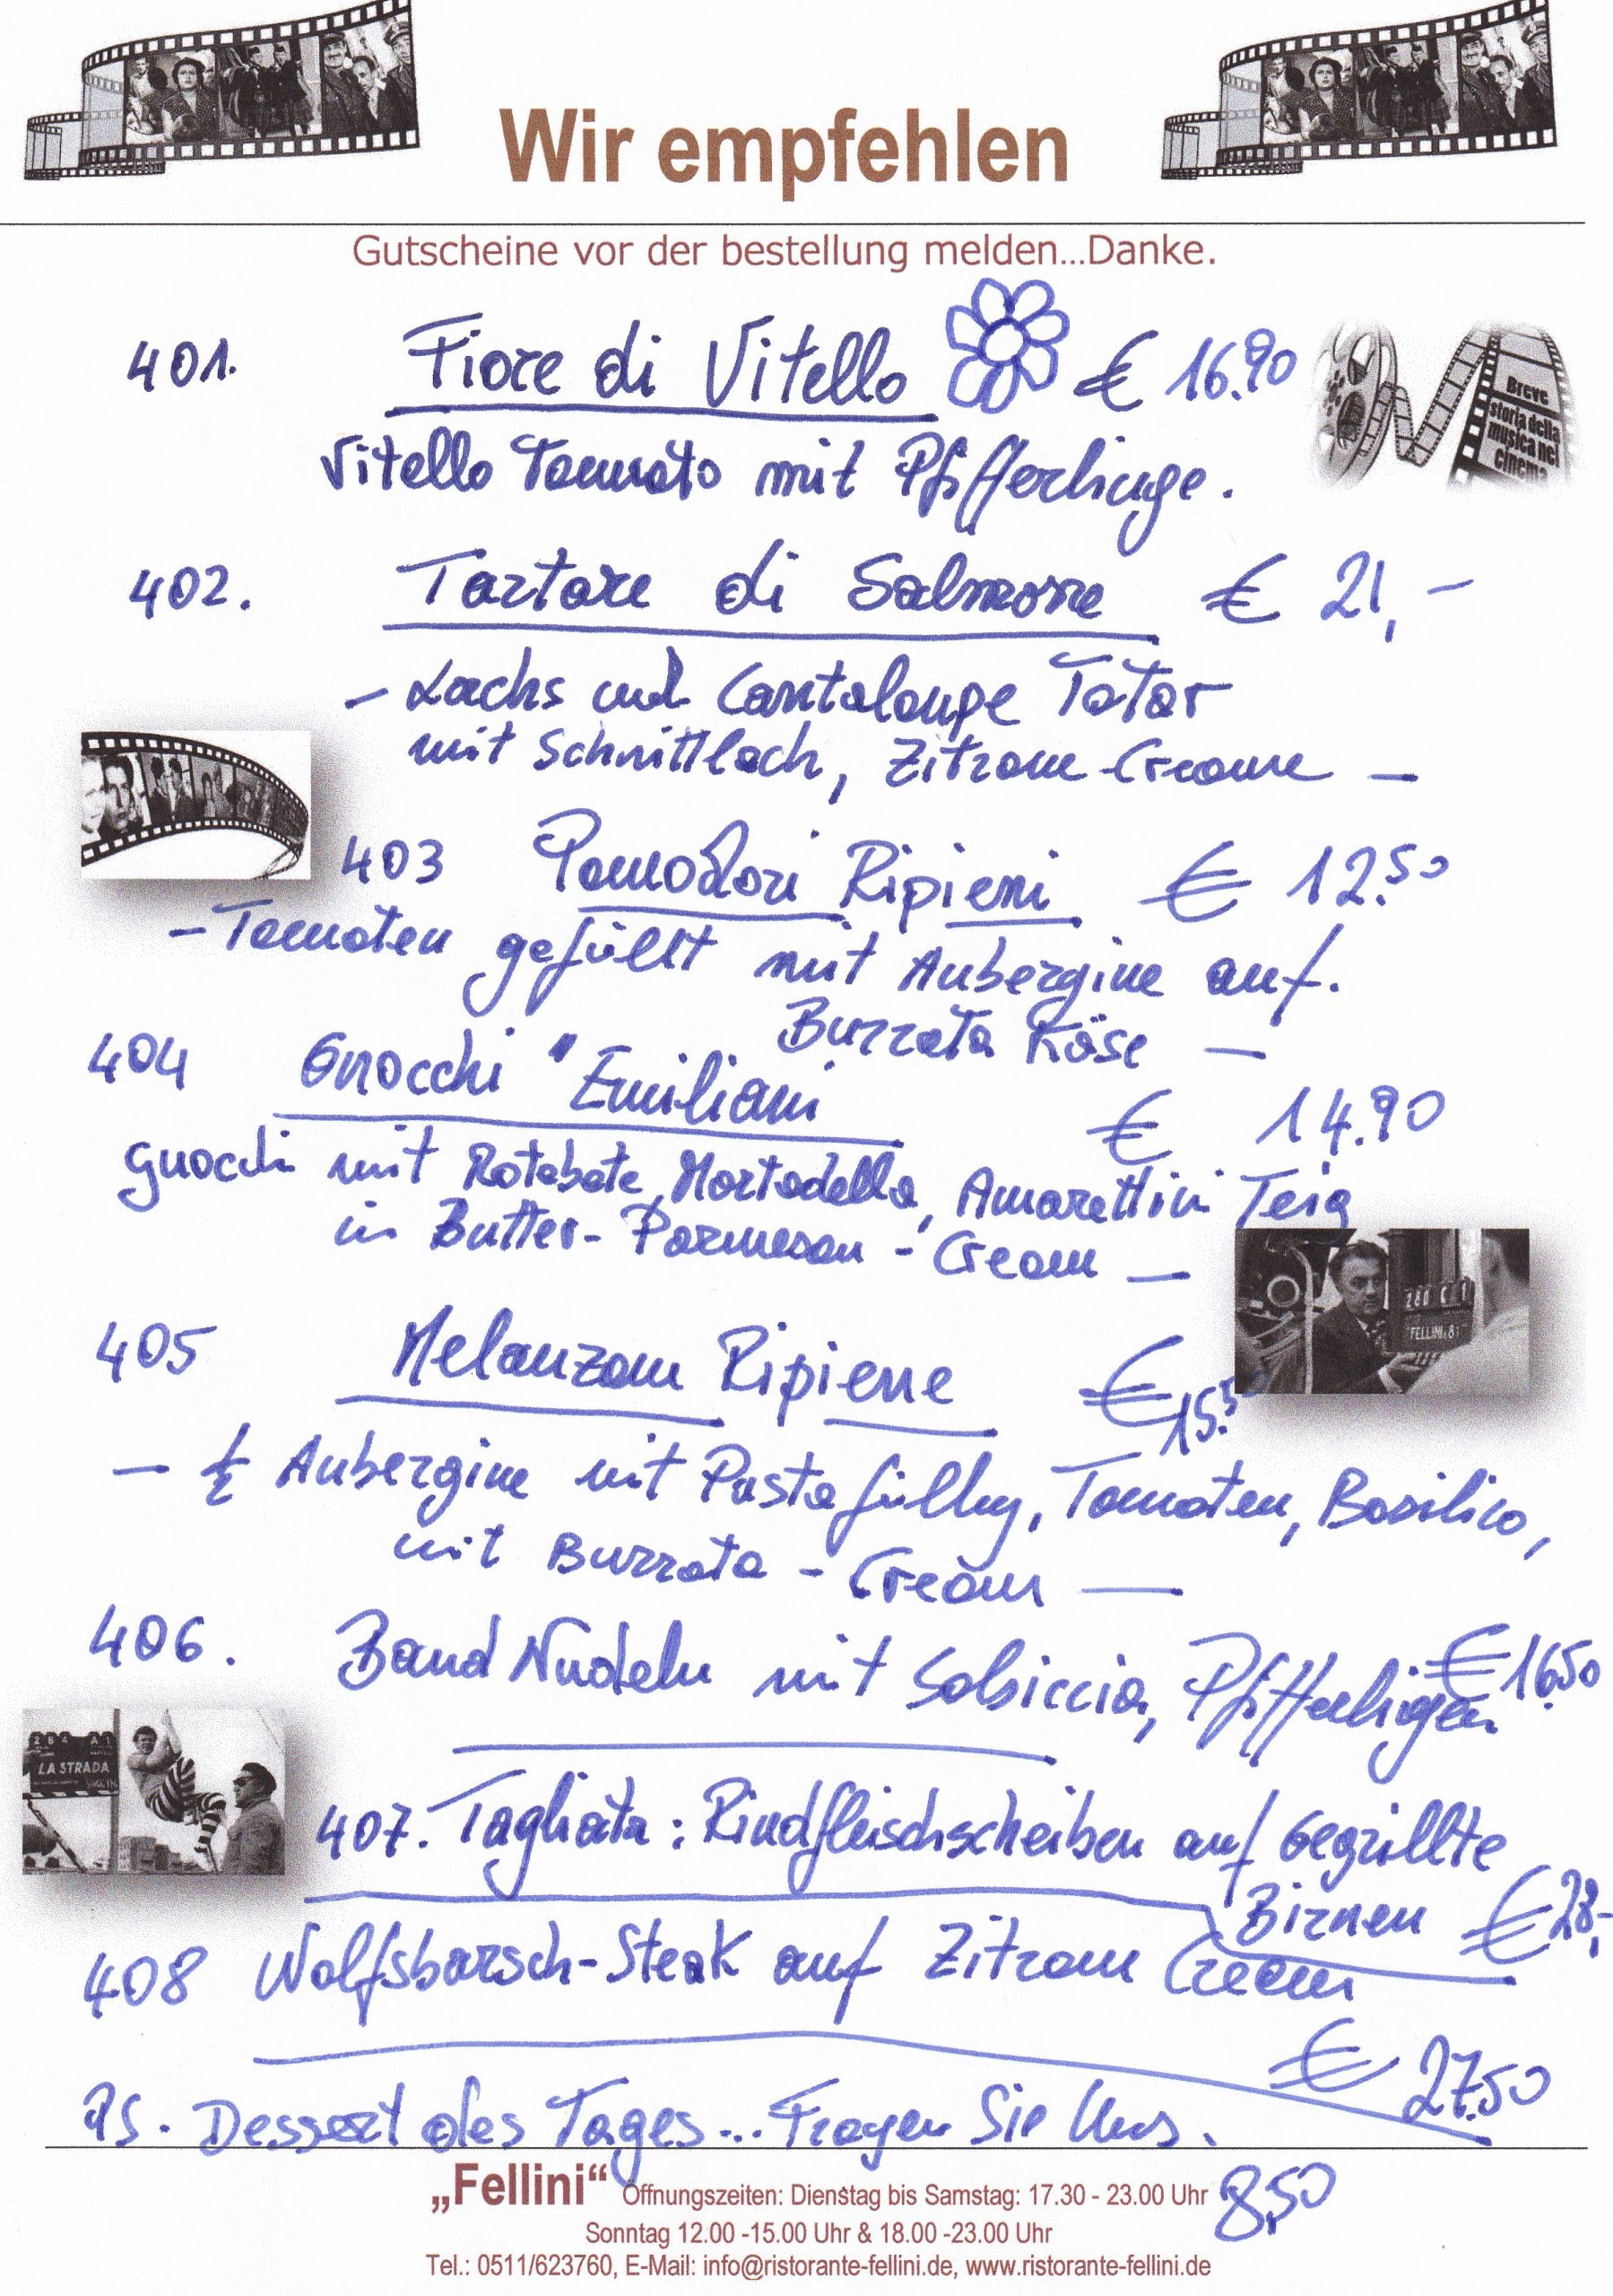 Wir empfehlen
Gutscheine vor der bestellung melden...Danke.
401. Fiore di Vitello € 16.90
Vitello Tonnato mit Pfifferlinge.
Breve
storia della
musica nel
cinema
402. Tartare di Salmone € 21,-
- Lachs und Cantaloupe Tatar
mit Schnittlach, Zitrone-Creame -
403 Pomodori Ripieni € 12.50
- Tomaten gefüllt mit Aubergine auf.
Burrata Käse -
404 Gnocchi "Emiliani € 14.90
Gnocchi mit Rotebete, Mortadella, Amarettini Teig
in Butter-Parmesan-Cream -
280 C 1
"FELLINI 8½
405 Melanzane Ripiene € 15.50
- ½ Aubergine mit Pastafüllug, Tomaten, Basilico,
mit Burrata - Cream -
406. Band Nudeln mit Salsiccia, Pfifferligen € 16.50
284 A1
LA STRADA
407. Tagliata: Rindfleischscheiben auf Gegrillte
Birnen € 28,-
408 Wolfsbarsch-Steak auf Zitrone Cream
€ 27.50
PS. Dessert des Tages... Fragen Sie Uns.
8,50
„Fellini“ Öffnungszeiten: Dienstag bis Samstag: 17.30 - 23.00 Uhr
Sonntag 12.00 -15.00 Uhr & 18.00 -23.00 Uhr
Tel.: 0511/623760, E-Mail: info@ristorante-fellini.de, www.ristorante-fellini.de